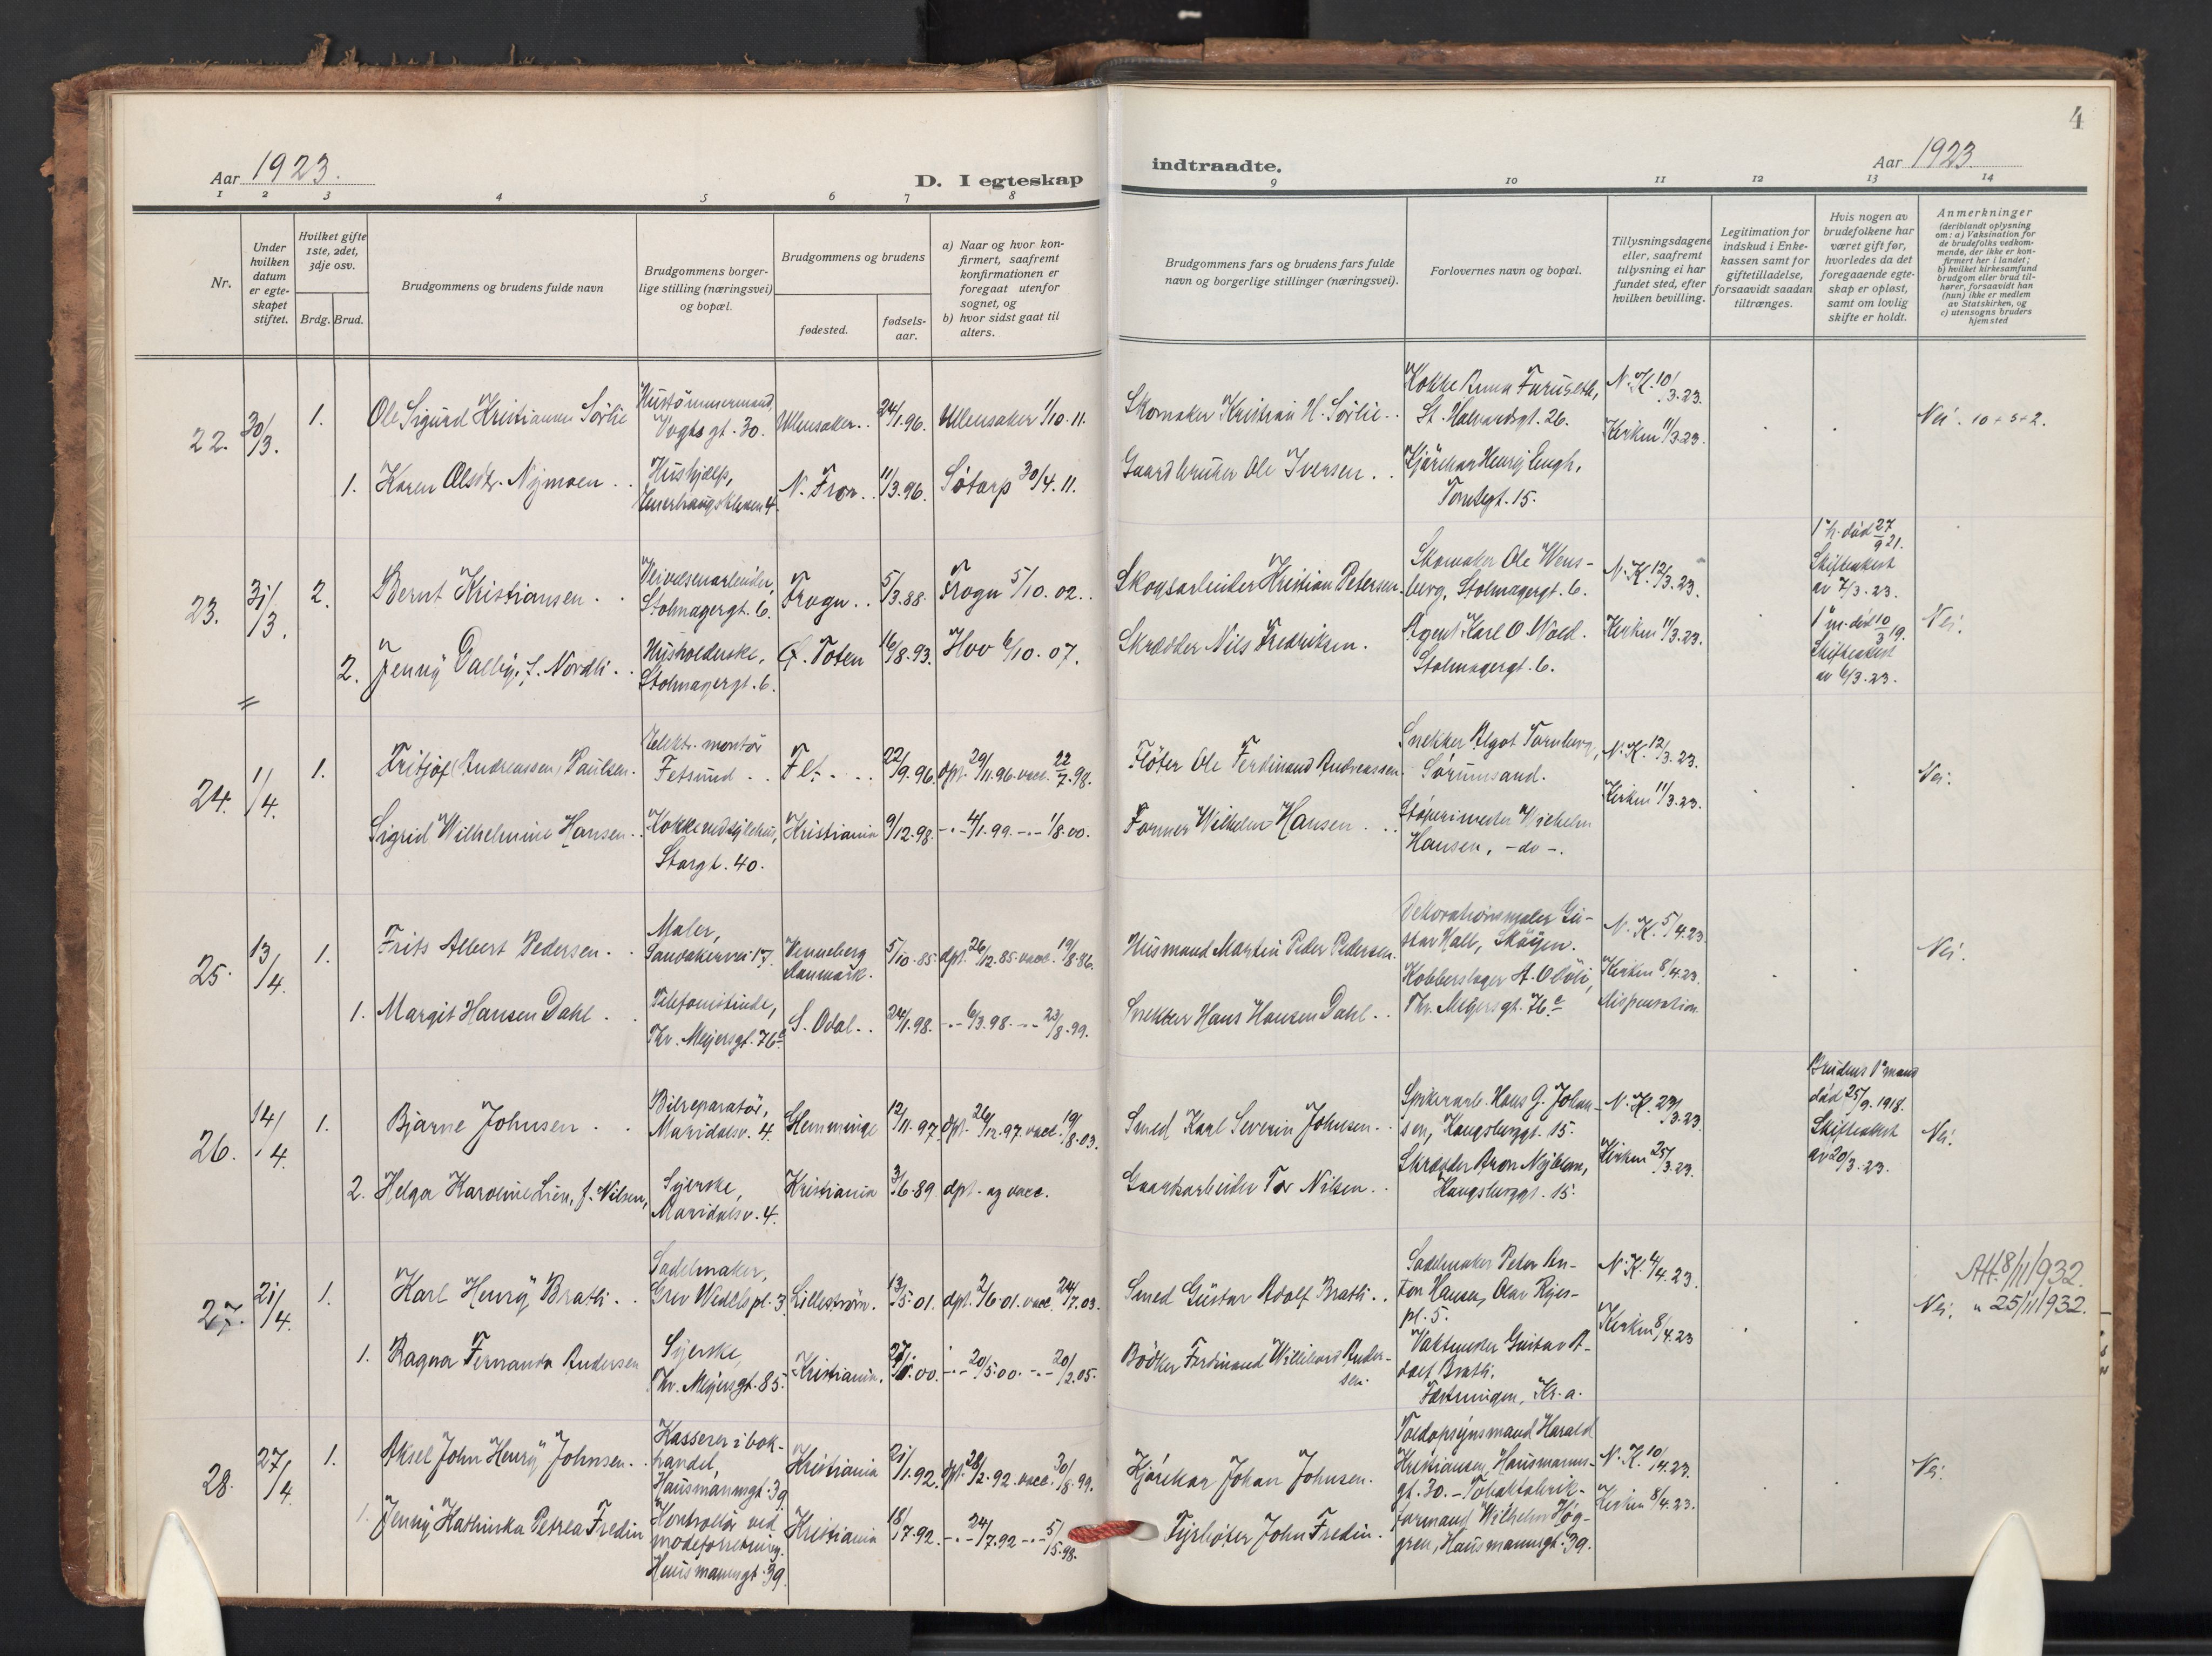 4
Aar 1923.
D. I egteskap
indtraadte.
Aar 1923
1 2 3 4 5 6 7 8 9 10 11 12 13 14
Nr.
Under
hvilken
datum
er egte-
skapet
stiftet.
Hvilket gifte
1ste, 2det,
3dje osv.
Brdg. Brud.
Brudgommens og brudens fulde navn
Brudgommens borger-
lige stilling (næringsvei)
og bopæl.
Brudgommens og brudens
fødested.
fødsels-
aar.
a) Naar og hvor kon-
firmert, saafremt
konfirmationen er
foregaat utenfor
sognet, og
b) hvor sidst gaat til
alters.
Brudgommens fars og brudens fars fulde
navn og borgerlige stillinger (næringsvei).
Forlovernes navn og bopæl.
Tillysningsdagene
eller, saafremt
tillysning ei har
fundet sted, efter
hvilken bevilling.
Legitimation for
indskud i Enke-
kassen samt for
giftetilladelse,
forsaavidt saadan
tiltrænges.
Hvis nogen av
brudefolkene har
været gift før,
hvorledes da det
foregaaende egte-
skap er opløst,
samt om lovlig
skifte er holdt.
Anmerkninger
(deriblandt oplysning
om: a) Vaksination for
de brudefolks vedkom-
mende, der ikke er kon-
firmert her i landet;
b) hvilket kirkesamfund
brudgom eller brud til-
hører, forsaavidt han
(hun) ikke er medlem
av Statskirken, og
c) utensogns bruders
hjemsted
22. 30/3. 1. Ole Sigurd Kristiansen Sørlie
Hustömmermand,
Vogts gt. 30.
Ullensaker.. 24/1.96. Ullensaker 1/10.11.
Skomaker Kristian H. Sørlie..
Kokke Anna Furuseth,
St. Halvardsgt. 26.
N. K. 10/3.23.
Kirken 11/3.23.
Nei. 10+5+2.
1. Karen Olsdtr. Nymoen..
Hushjælp,
N. Fron.. 11/3.96. Södorp 30/4.11.
Gaardbruker Ole Iversen..
Kjörekar Henry Engh,
Tomtegt. 15.
23. 31/3. 2. Bernt Kristiansen..
Veivæsenarbeider,
Stolmagergt. 6.
Frogn.. 5/3.88. Frogn 5/10.02..
Skogsarbeider Kristian Petersen.
Skomaker Ole Wens-
berg, Stolmagergt. 6.
N. K. 12/3.23.
Kirken 11/3.23.
1° h. död 27/9 21.
Skifteattest
av 7/3.23.
2. Jenny Dalby, f. Nordli..
Husholderske,
Stolmagergt. 6.
Ö. Toten 16/8.93. Hov 6/10.07.
Skrædder Nils Fredriksen.
Agent Karl O Wold.
Stolmagergt. 6.
1° m. död 10/3 19.
Skifteattest
av 6/3.23.
Nei.
24. 1/4. 1. Fritjof (Andreassen) Paulsen.
Elektr. montör
Fetsund..
Fet... 22/9.96. dpt. 29/11.96. vacc. 22/7.98.
Flöter Ole Ferdinand Andreassen.
Snekker Algot Tornberg,
Sørumsand.
N. K. 12/3.23.
Kirken 11/3.23.
Nei.
Sigrid Wilhelmine Hansen..
Storgt. 40.
Kristiania 9/12.98. -.- 4/1.99. -.- 1/8.00.
Former Wilhelm Hansen..
Støperimester Wilhelm
Hansen, -do-.
25. 13/4. 1. Frits Albert Pedersen..
Maler,
Sandakervei 17.
Venneberg
Danmark.
5/10.85 dpt. 26/12.85. vacc. 19/8.86.
Husmand Martin Peder Pedersen.
Dekorationsmaler Gu-
stav Hall, Skøyen.
N. K. 5/4.23
Kirken 8/4.23.
Dispensation
Nei.
1. Margit Hansen Dahl..
Telefonistinde,
Thv. Meyersgt. 76c
S. Odal.. 24/1.98. -.- 6/3.98. -.- 23/8.99.
Snekker Hans Hansen Dahl..
Kobberslager A. O
Thv. Meyersgt. 76c
26. 14/4. 1. Bjarne Johnsen..
Bilreparatör,
Maridalsv. 4.
Hemminge 12/11.97. dpt. 26/12.97. vacc. 19/8.03.
Smed Karl Severin Johnsen..
Spikerarb. Hans G. Johan-
sen, Haugsbyggt. 15.
N. K. 23/3.23.
Kirken 25/3.23.
Brudens 1° mand
död 25/9.1918.
Skifteattest
av 20/3.23.
Nei.
2. Helga Karoline Lien, f. Nilsen,
Syerske,
Maridalsv. 4.
Kristiania 3/6.89. dpt. og vacc.
Gaardsarbeider Tor Nilsen..
Skrædder Aron
15.
27. 21/4. 1. Karl Henry Bratli..
Sadelmaker,
Grev Wedels pl. 3.
Lilleström. 13/5.01. dpt. 2/6.01. vacc. 24/7.03.
Smed Gustav Adolf Bratli..
Sadelmaker Peter An-
ton Hansen, Olav Ryes-
pl. 5.
N. K. 4/4.23.
Kirken 8/4.23
Att. 8/11/932.
Nei. " 25/11/932.
1. Ragna Fernanda Andersen
Syerske,
Thv. Meyersgt. 85.
Kristiania. -.- 20/5.00. -.- 20/2.05.
Bödker Ferdinand Willihard Ander-
sen.
Vaktmester Gustav A-
dolf Bratli.
Fæstningen, Kr.a.
28. 27/4. 1. Aksel John Henry Johnsen..
Kasserer i bok-
handel,
Hausmannsgt. 39
Kristiania 21/1.92. dpt. 28/2.92. vacc. 30/8.99.
Kjörekar Johan Johnsen.
Toldopsynsmand Harald
Kristiansen, Hausmanns-
gt. 30. - Tobakfabrik-
N. K. 10/4.23.
Kirken 8/4.23.
Nei.
1. Jenny Kathinka Petrea Fredin
Kontrollör ved
modeforretning.
Hausmannsgt. 39.
Kristiania 18/7.92. -.- 24/7.92 -.- 5/5.98.
Fyrböter John Fredin.
formand Wilhelm Høg-
gren, Hausmannsgt. 39.